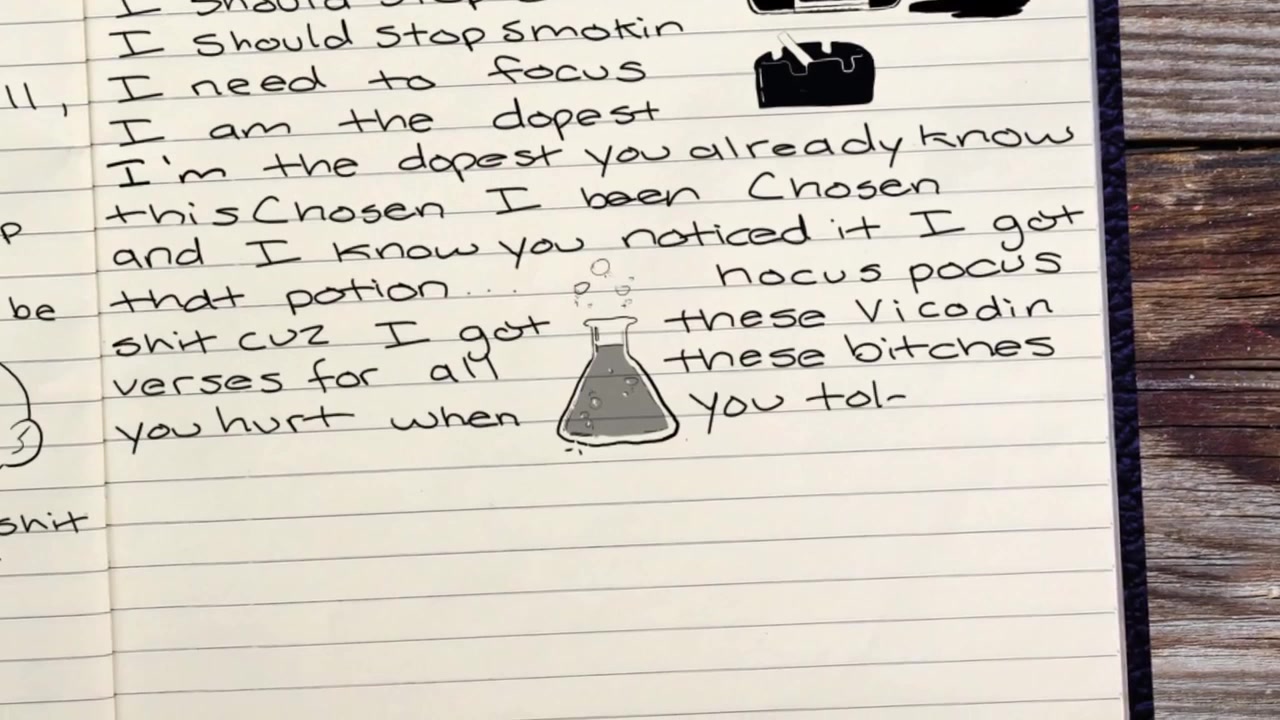 I Should Stop
I Should Stop Smokin
ll, I need to focus
I am the dopest
I'm the dopest you already know
this Chosen I been Chosen
p and I know you noticed it I got
that potion... hocus pocus
be shit cuz I got these Vicodin
verses for all these bitches
you hurt when you tol-
shit